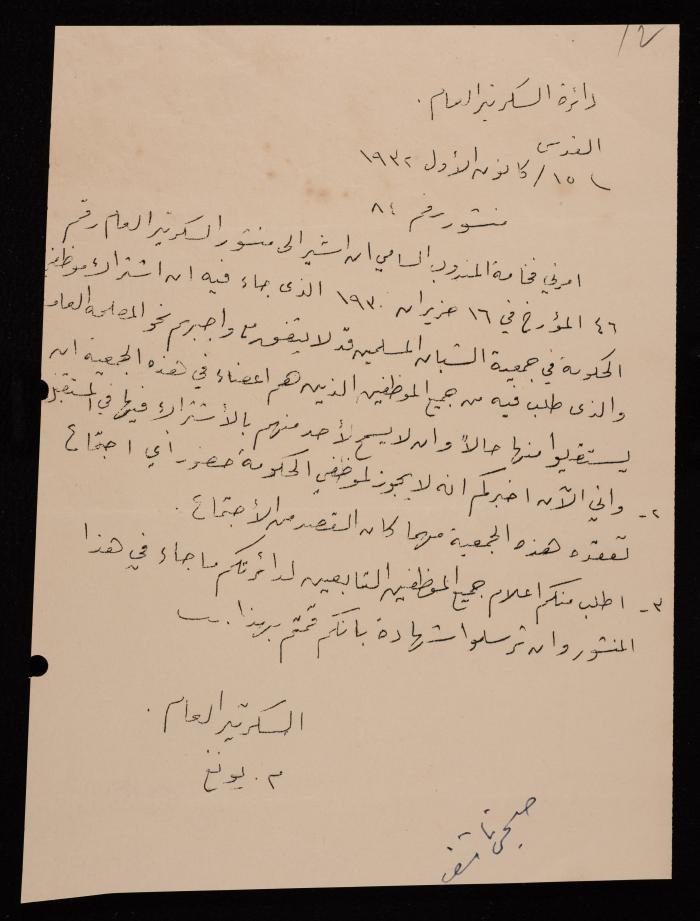 ١٢
دائرة السكرتير العام.
القدس
١٥/ كانون الأول ١٩٣٢
منشور رقم ٨٤
امرني فخامة المندوب السامي ان اشير الى منشور السكرتير العام رقم
٤٦ المؤرخ في ١٦ حزيران ١٩٣٠ الذى جاء فيه ان اشتراك موظفي
الحكومة في جمعية الشبان المسلمين قد لا يتفق مع واجبهم نحو المصلحة العامة
والذى طلب فيه من جميع الموظفين الذين هم اعضاء في هذه الجمعية ان
يستقيلوا منها حالاً وان لا يسمح لأحد منهم بالأشتراك فيها في المستقبل
٢- واني الآن اخبركم انه لا يجوز لموظفي الحكومة حضور أي اجتماع
تعقده هذه الجمعية مهما كان القصد من الأجتماع.
٣- اطلب منكم اعلام جميع الموظفين التابعين لدائرتكم ما جاء في هذا
المنشور وان ترسلوا شهادة بانكم قمتم بهذا.
السكرتير العام.
م. يونغ